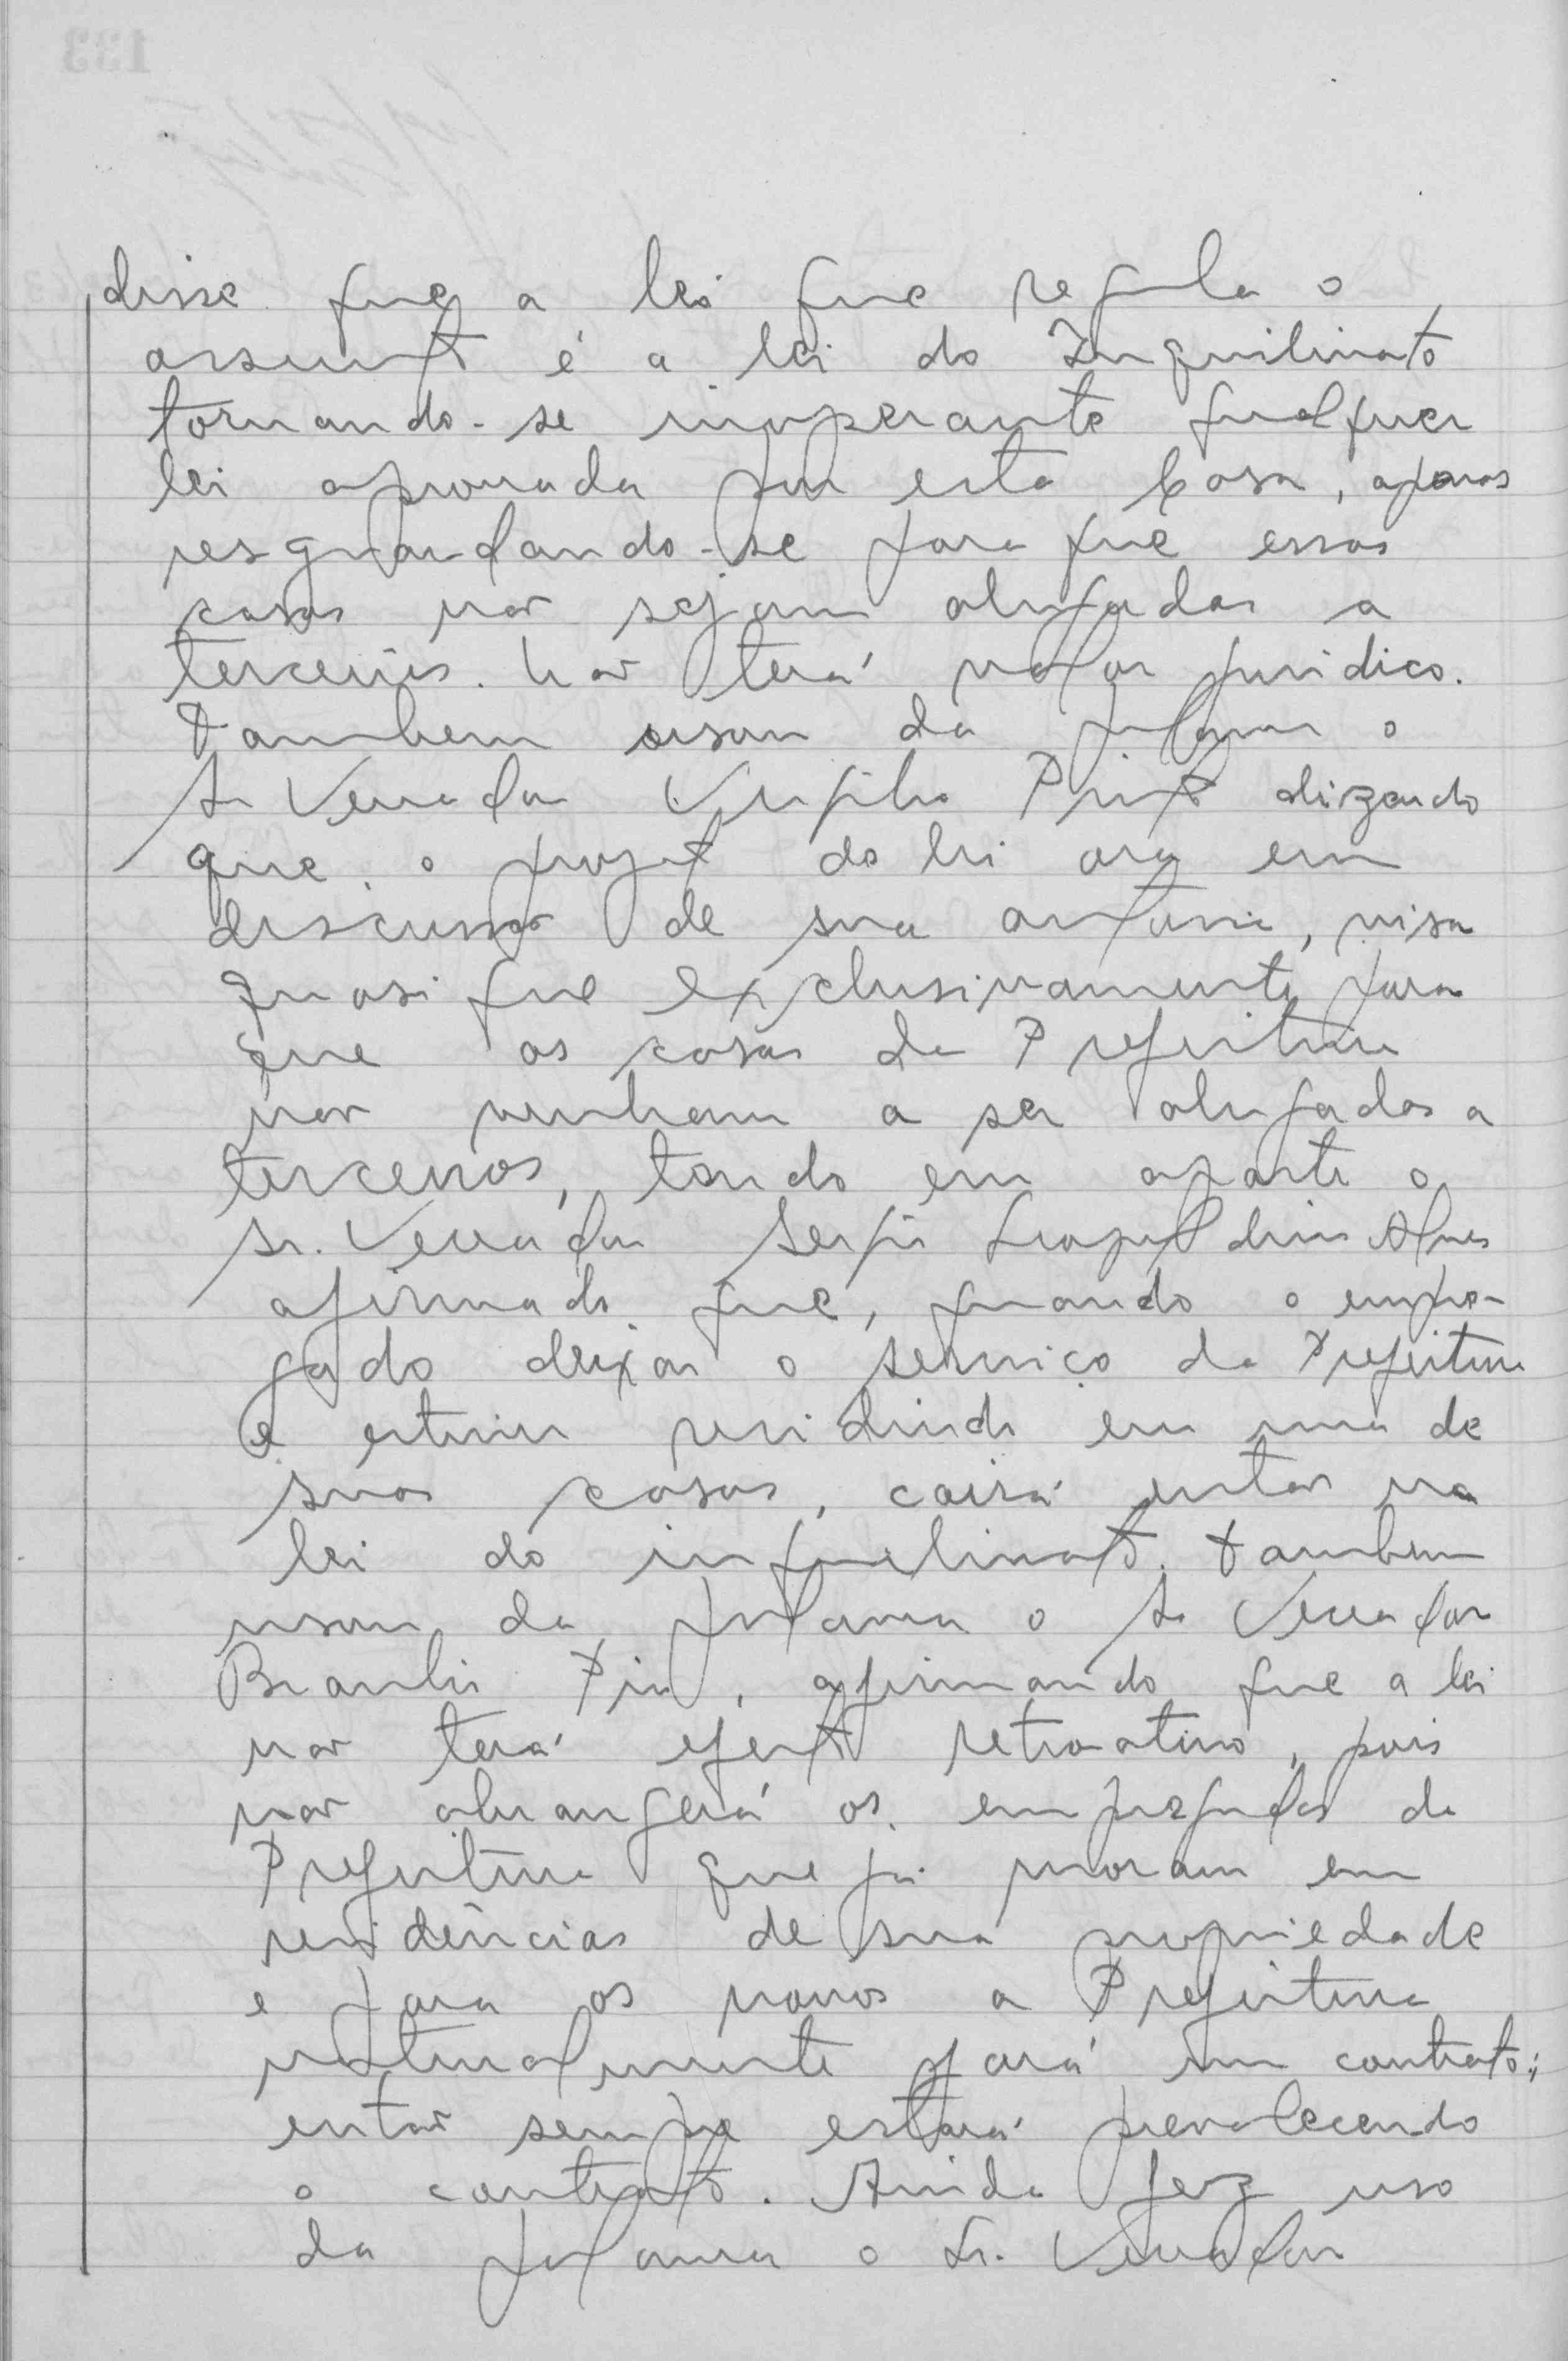 disse que a lei que regula o
assunto é a lei do Inquilinato
tornando-se inoperante qualquer
lei aprovada por esta Casa, apenas
resguardando-se para que essas
casas não sejam alugadas a
terceiros. Não terá valor juridico.
Tambem usou da palavra o
Sr Vereador Virgilio Pinto dizendo
que o projeto de lei ora em
discussão de sua autoria, visa
quasi que exclusivamente para
que as casas da Prefeitura
não venham a ser alugadas a
terceiros, tendo em aparte o
Sr. Vereador Sergio Leopoldino Alves
afirmado que, quando o empre-
gado deixar o serviço da Prefeitura
e estiver residindo em uma de
suas casas, cairá então na
lei do inquilinato. Tambem
usou da palavra o Sr Vereador
Braulio Pio, afirmando que a lei
não terá efeito retroativo, pois
não abrangerá os empregados da
Prefeitura que já moram em
residências de sua propriedade
e para os novos a Prefeitura
naturalmente fará um contrato;
então sempre estará prevalecendo
o contrato. Ainda fez uso
da palavra o Sr. Vereador